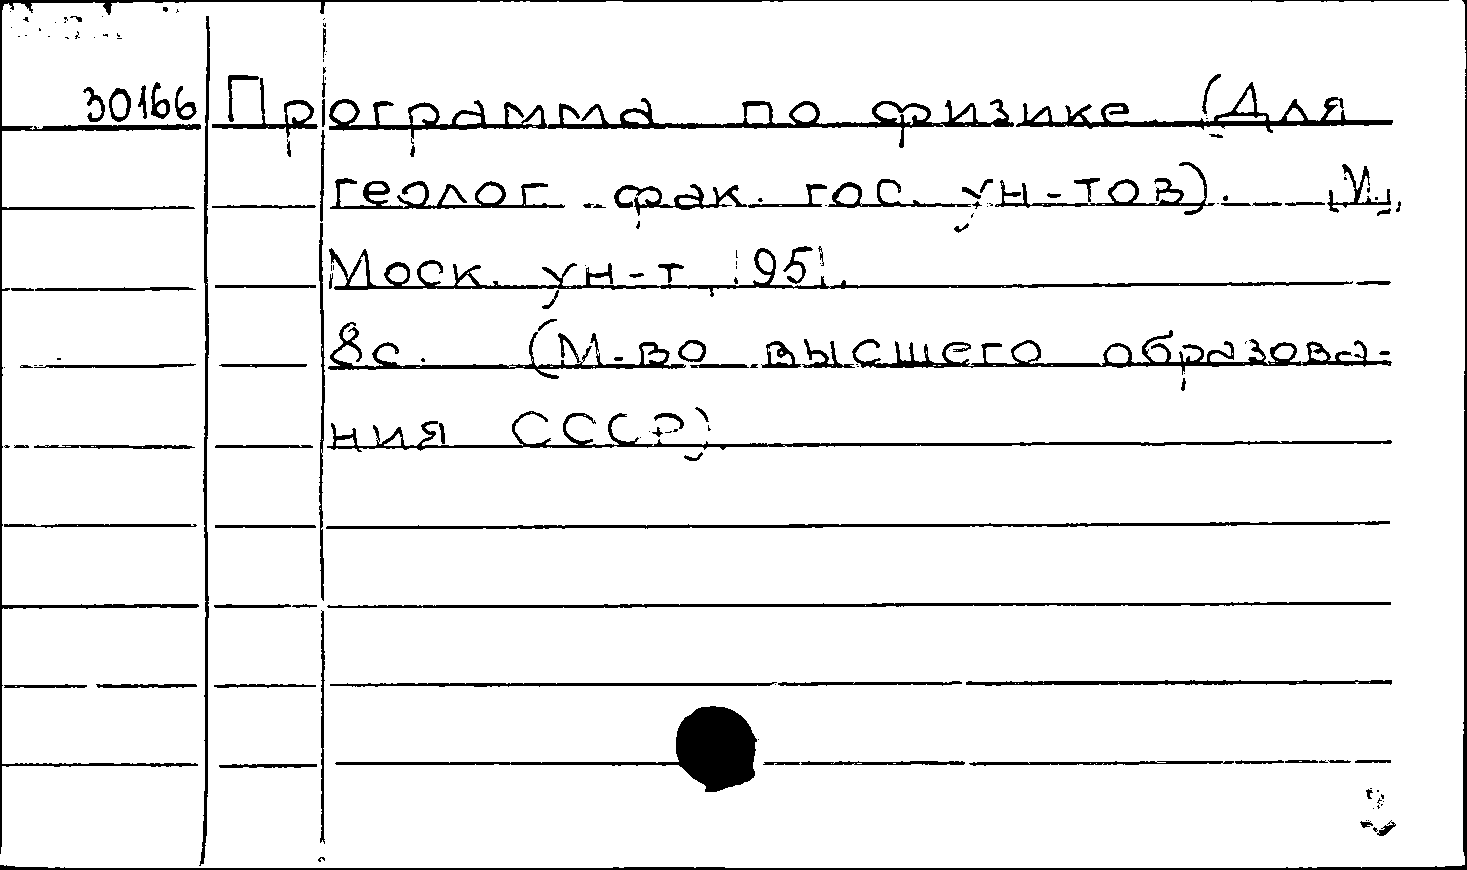 30166 Программа по физике (Для
геолог. фак. гос. ун-тов). [М.],
Моск. ун-т, 1951.
8с. (М-во высшего образова-
ния СССР).